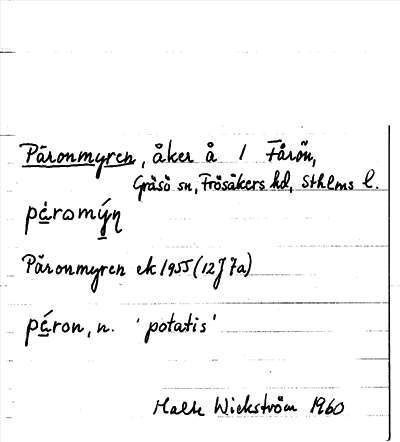 Päronmyren, åker å 1 Fårön,
Gräsö sn, Frösåkers hd, Sthlms l.
pä́romýn
Päronmyren ek 1955 (12J 7a)
pä́ron, n. 'potatis'
Wickström 1960